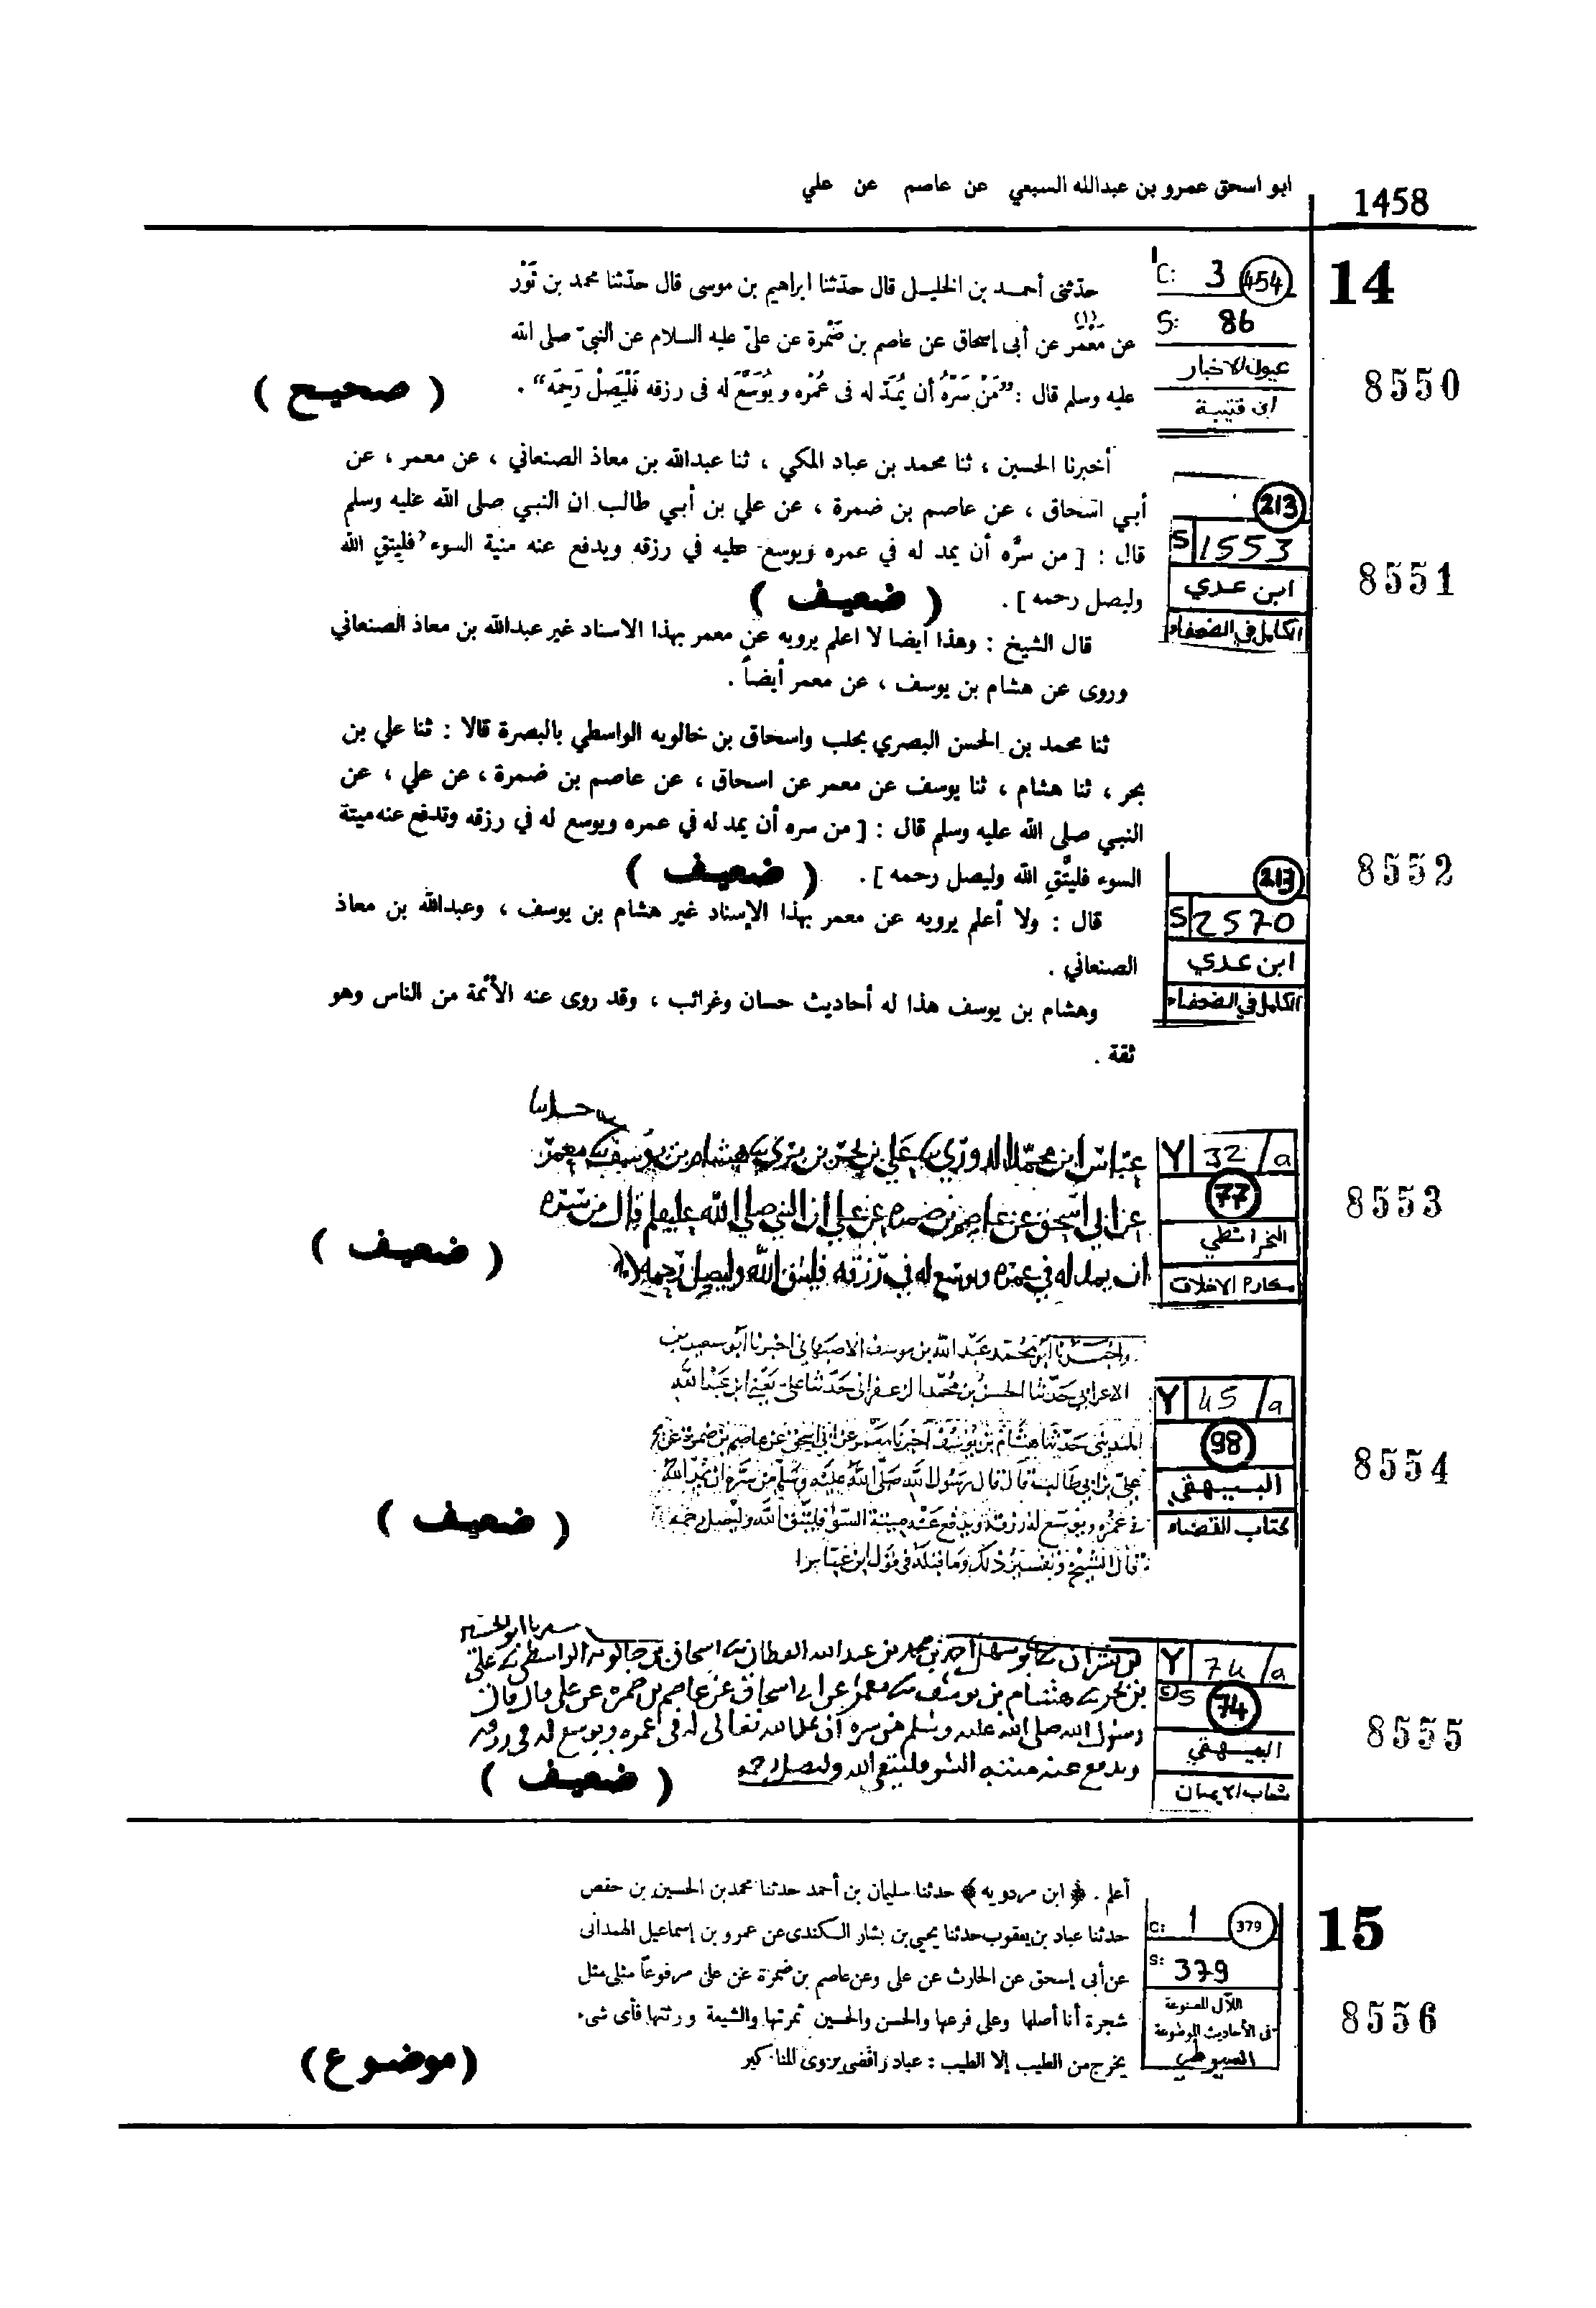 ابو اسحق عمرو بن عبدالله السبعي عن عاصم عن علي
1458
14
C: 3 454
S: 86
عيون الاخبار
ابن قتيبة
8550
حدّثنى أحمـد بن الخليـل قال حدّثنا ابراهيم بن موسى قال حدّثنا محمد بن ثَوْر
عن مَعْمَر (١) عن أبى إسحاق عن عاصم بن ضَمْرة عن علىّ عليه السلام عن النبىّ صلى الله
عليه وسلم قال : ”مَنْ سَرَّهُ أن يُمَدّ له فى عُمْره و يُوَسَّعَ له فى رزقه فَلْيَصِلْ رَحِمَه“ .
( صحيح )
213
S 1553
ابن عدي
الكامل في الضعفاء
8551
أخبرنا الحسين ، ثنا محمد بن عباد المكي ، ثنا عبدالله بن معاذ الصنعاني ، عن معمر ، عن
أبي اسحاق ، عن عاصم بن ضمرة ، عن علي بن أبي طالب ان النبي صلى الله عليه وسلم
قال : [ من سرَّه أن يمد له في عمره ويوسع عليه في رزقه ويدفع عنه منية السوء فليتقِ الله
وليصل رحمه ] .
( ضعيف )
قال الشيخ : وهذا أيضا لا اعلم يرويه عن معمر بهذا الاسناد غير عبدالله بن معاذ الصنعاني
وروى عن هشام بن يوسف ، عن معمر أيضاً .
8552
213
S 2570
ابن عدي
الكامل في الضعفاء
ثنا محمد بن الحسن البصري بحلب واسحاق بن خالويه الواسطي بالبصرة قالا : ثنا علي بن
بحر ، ثنا هشام ، ثنا يوسف عن معمر عن اسحاق ، عن عاصم بن ضمرة ، عن علي ، عن
النبي صلى الله عليه وسلم قال : [ من سره أن يمد له في عمره ويوسع له في رزقه وتدفع عنه ميتة
السوء فليتَّقِ الله وليصل رحمه ] .
( ضعيف )
قال : ولا أعلم يرويه عن معمر بهذا الإسناد غير هشام بن يوسف ، وعبدالله بن معاذ
الصنعاني .
وهشام بن يوسف هذا له أحاديث حسان وغرائب ، وقد روى عنه الأئمة من الناس وهو
ثقة .
Y 32/a
77
الخرائطي
مكارم الاخلاق
8553
عباس ابن محمد الدوري علي بن بحر بن بري هشام بن يوسف معمر
عن ابي اسحق عن عاصم بن ضمره عن علي ان النبي صلي الله عليه وسلم قال من سره
ان يمد له في عمره ويوسع له في رزقه فليتق الله وليصل رحمه
( ضعيف )
Y 45/a
98
البيهقي
كتاب القضاء
8554
واخبرنا ابو محمد عبد الله بن يوسف الاصبهاني اخبرنا ابو سعيد بن
الاعرابي حدثنا الحسن بن محمد الزعفراني حدثنا علي يعني ابن عبد الله
المديني حدثنا هشام بن يوسف اخبرنا معمر عن ابي اسحق عن عاصم بن ضمرة عن
علي بن ابي طالب قال قال رسول الله صلى الله عليه وسلم من سره ان يمد الله
في عمره ويوسع له رزقه ويدفع عنه ميتة السوء فليتق الله وليصل رحمه
قال الشيخ وتفسير ذلك وما قبله في قول ابن عباس
( ضعيف )
Y 74/a
74
البيهقي
شعاب الايمان
8555
بن بشران ابو سهل احمد بن محمد بن عبد الله القطان اسحاق بن خالويه الواسطي علي
بن بحر هشام بن يوسف معمر عن ابي اسحاق عن عاصم بن ضمره عن علي قال قال
رسول الله صلى الله عليه وسلم من سره ان يمد الله تعالى له في عمره ويوسع له في رزقه
ويدفع عنه ميتة السوء فليتق الله وليصل رحمه
( ضعيف )
15
C: 1 379
S: 379
اللآلى المصنوعة
فى الأحاديث الموضوعة
السيوطي
8556
أعلم . ﴿ ابن مردويه ﴾ حدثنا سليمان بن أحمد حدثنا محمد بن الحسين بن حفص
حدثنا عباد بن يعقوب حدثنا يحيى بن بشار الكندى عن عمرو بن إسماعيل الهمدانى
عن أبى إسحق عن الحارث عن على وعن عاصم بن ضمرة عن على مرفوعاً مثلى مثل
شجرة أنا أصلها وعلى فرعها والحسن والحسين ثمرتها والشيعة ورقتها فأى شىء
يخرج من الطيب إلا الطيب : عباد رافضى يروى المناكير
(موضوع)